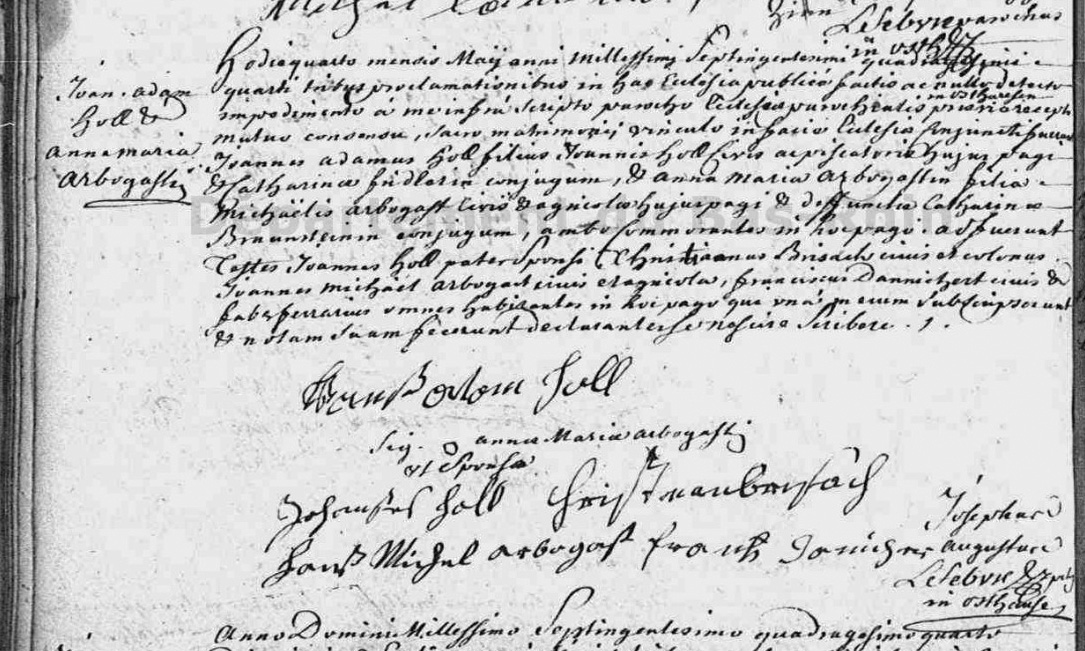 Zion
Lefebvre parochus
in osth
Joan. adam
Holl &
anna maria
arbogastin
Hodie quarto mensis Maij anni Millessimi Septingentesimi quadragesimi
quarti tribus proclamationibus in hac Eclesia publicè factis ac nullo detecto
impedimento à me infra scripto parocho Eclesiae parochialis in osthausen recepto
mutuo consensu, sacro matrimonij vinculo in facie Eclesiae conjuncti fuerunt
Joannes adamus Holl filius Joannis Holl Civis ac piscatoris hujus pagi
& Catharinae fridlerin conjugum, & anna maria arbogastin filia
Michaëlis arbogast Civis & agricolae hujus pagi & deffunctae Catharinae
Braunsteinin conjugum, ambo commorantes in hoc pago adfuerunt
Testes Joannes Holl pater Sponsi Christianus Brisach civis et colonus
Joannes michaël arbogast civis et agricola, franciscus Dannichert civis &
faber ferrarius omnes habitantes in hoc pago qui una mecum subscripserunt
& notam suam fecerunt declarantes se nescire scribere . / .
Hanß adam Holl
Sig. anna Maria arbogastin
Sponsae
Johannes Holl Christian Brisach
Hans Michel arbogast frantz Danicher
Josephus
Augustus
Lefebvre
in osthause
Anno Domini Millessimo Septingentesimo quadragesimo quarto